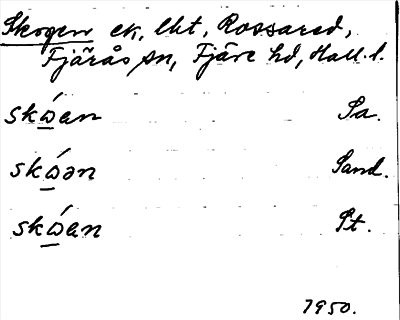 Skogen ek, lht, Rossared,
Fjärås sn, Fjäre hd, Hall. l.
skɷ́an Sa.
skɷ́ən Sand.
skɷ́an St.
1950.